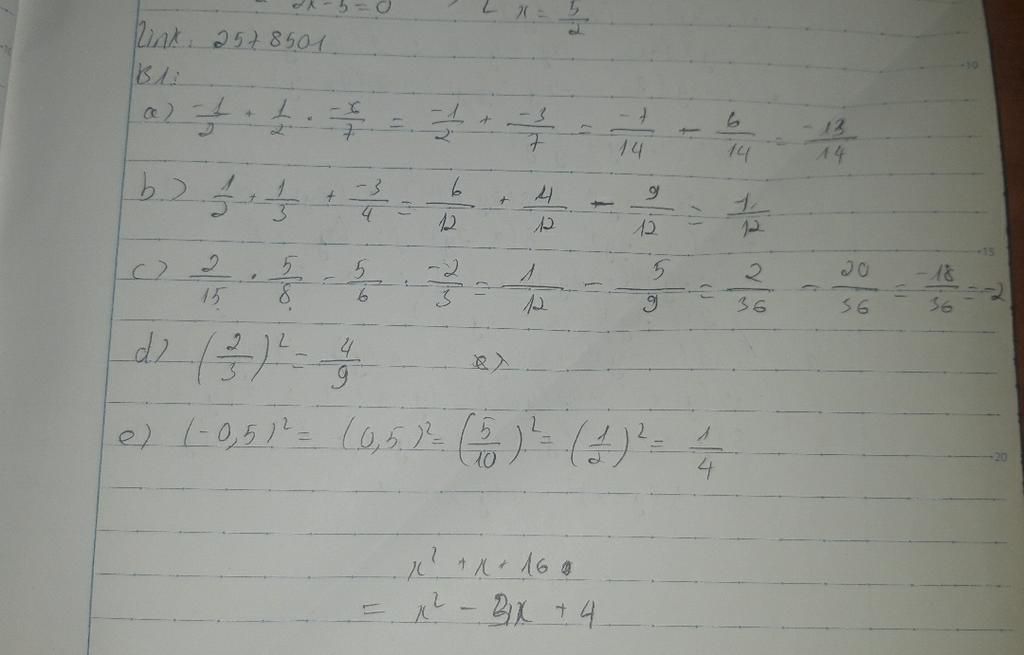 2x-5=0 x = 5/2
link: 2578501
B1:
a) -1/2 + 1/2 . -x/7 = -1/2 + -3/7 = -7/14 - 6/14 = -13/14
b) 1/2 + 1/3 + -3/4 = 6/12 + 4/12 - 9/12 = 1/12
c) 2/15 . 5/8 - 5/6 . -2/3 = 1/12 - 5/9 = 2/36 - 20/36 = -18/36 = -2
d) (2/3)² = 4/9 e)
e) (-0,5)² = (0,5)² = (5/10)² = (1/2)² = 1/4
x² + x + 16
= x² - 2x + 4